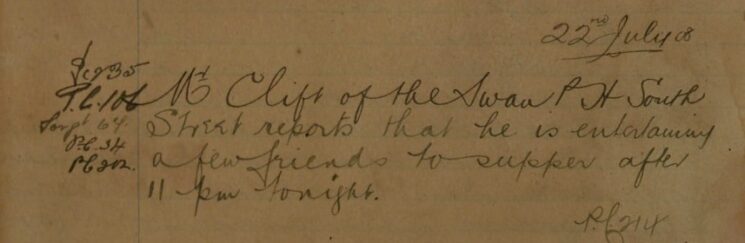 22nd July 08
P.C. 35
P.C. 106
Sergt 64
P.C. 34
P.C. 202.
Mr Clift of the Swan P H South
Street reports that he is entertaining
a few friends to supper after
11 pm tonight.
P.C. 214